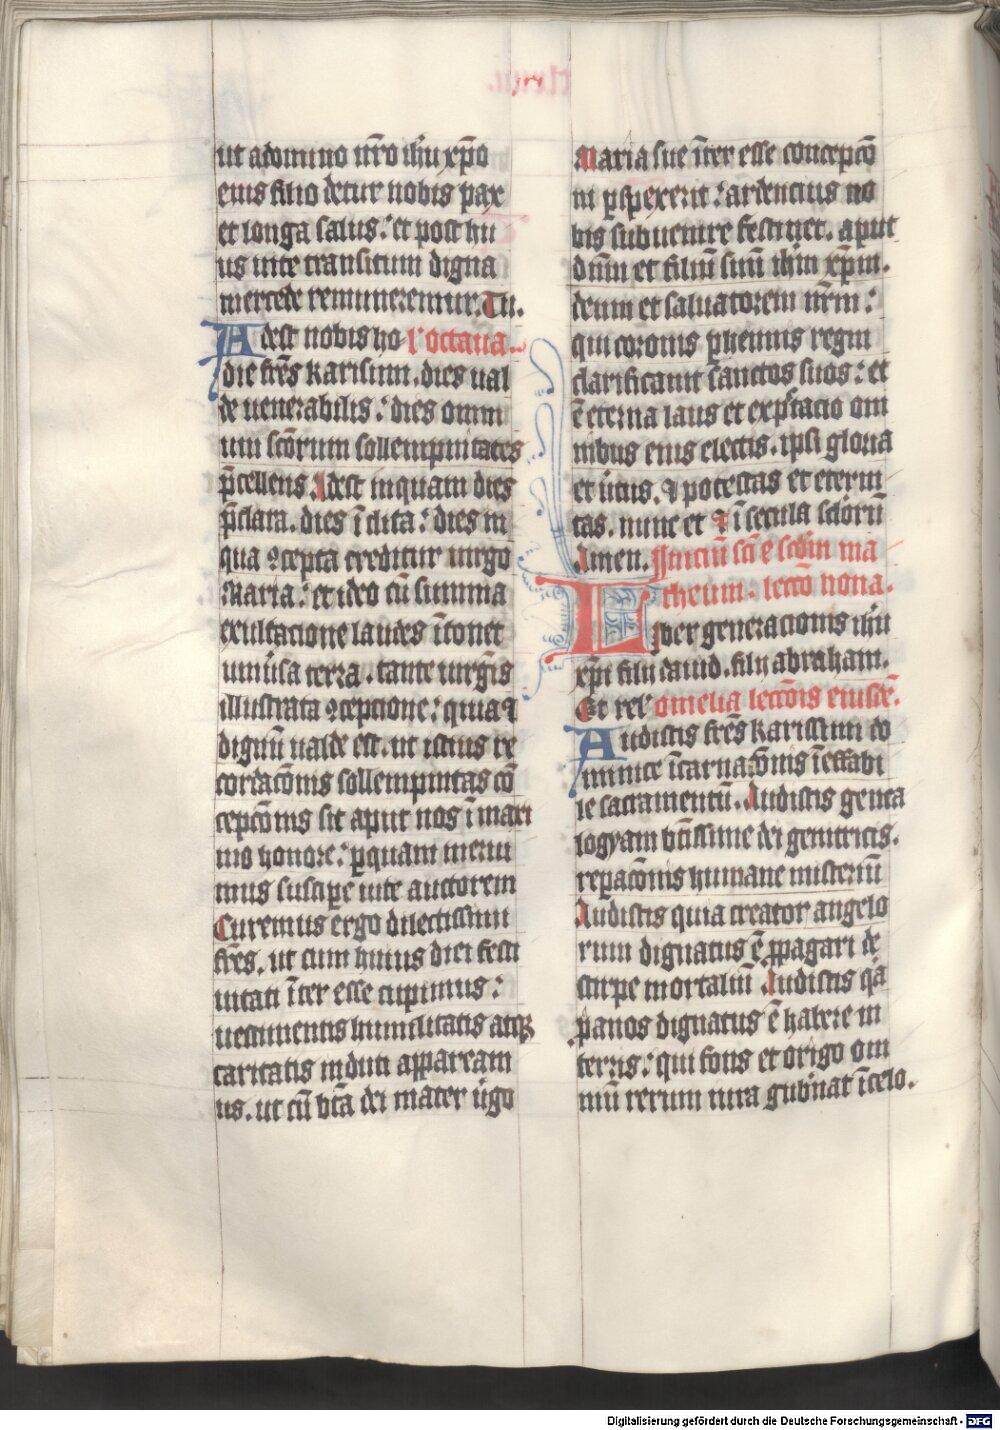 ut a domino nr̄o ihū xp̄o
eius filio detur nobis pax
et longa salus: et post hu
ius uite transitum digna
mercede remuneremur. Tu.
Adest nobis ho l'octaua.
die fr̄es karissim. dies ual
de uenerabilis: dies omni
um sc̄orum sollempnitates
p̄cellens. Adest inquam dies
p̄clara. dies īclita: dies in
qua ꝯcepta creditur uirgo
Maria: et ideo cū summa
exultacione laudes ītonet
uniu̾sa terra. tante uirgīs
illustrata ꝯcepcione: quia
dignū ualde est. ut istius re
cordac̄onis sollempnitas cō
cepc̄onis sit aput nos ī maxi
mo honore: ꝑ quam meru
imus suscipe uite auctorem
Curemus ergo dilectissimi
fr̄es. ut cum huius diei festi
uitati īter esse cupimus:
uestimentis humilitatis atqꝫ
caritatis induti appaream
us. ut cū btā dei mater u̾igo
Maria sue īter esse concepc̄o
ni ꝑspexerit: ardencius no
bis subuenire festinet. aput
dn̄m et filiū suū ihm̄ xp̄m.
deum et saluatorem nr̄m:
qui coronis ꝑhennis regni
clarificauit sanctos suos: et
ē eterna laus et exp̄ctacio om
nibus eius electis. ipsi gloria
et u̾tus. ⁊ potestas et eterni
tas. nunc et ⁊ ī secula sc̄lorū
Amen. Iniciū sc̄i ew̄ sc̄dm ma
theum. lecc̄o nona.
Liber generacionis ihū
xp̄i filij dauid. filij abraham.
Et rel' omelia lecc̄ois eiusdē.
Audistis fr̄es karissimi do
minice īcarnac̄onis īeffabi
le sacramentū. Audistis genea
logyam btīssime dei genitricis.
repac̄onis humane misterīū
Audistis quia creator angelo
rum dignatus ē ꝓpagari de
stirpe mortaliū Audistis qa
panos dignatus ē habere in
terris: qui fons et origo om
niū rerum iura gub̾nat ī celo.
Digitalisierung gefördert durch die Deutsche Forschungsgemeinschaft - DFG